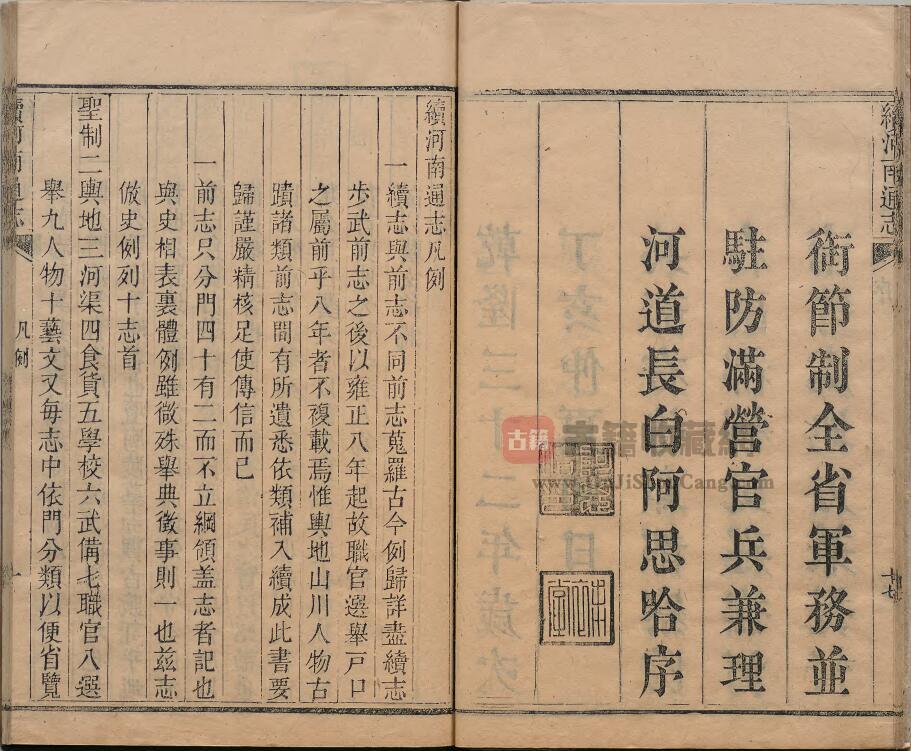 續河南通志
銜節制全省軍務並
駐防滿營官兵兼理
河道長白阿思哈序
十七
古籍
古籍收藏網
www.GuJiShouCang.com
續河南通志凡例
一續志與前志不同前志蒐羅古今例歸詳盡續志
步武前志之後以雍正八年起故職官選舉戸口
之屬前乎八年者不複載焉惟輿地山川人物古
蹟諸類前志間有所遺悉依類補入續成此書要
歸謹嚴精核足使傳信而已
一前志只分門四十有二而不立綱領盖志者記也
與史相表裏體例雖微殊舉典徵事則一也兹志
倣史例列十志首
聖制二輿地三河渠四食貨五學校六武備七職官八選
舉九人物十藝文又每志中依門分類以便省覽
續河南通志
凡例
一